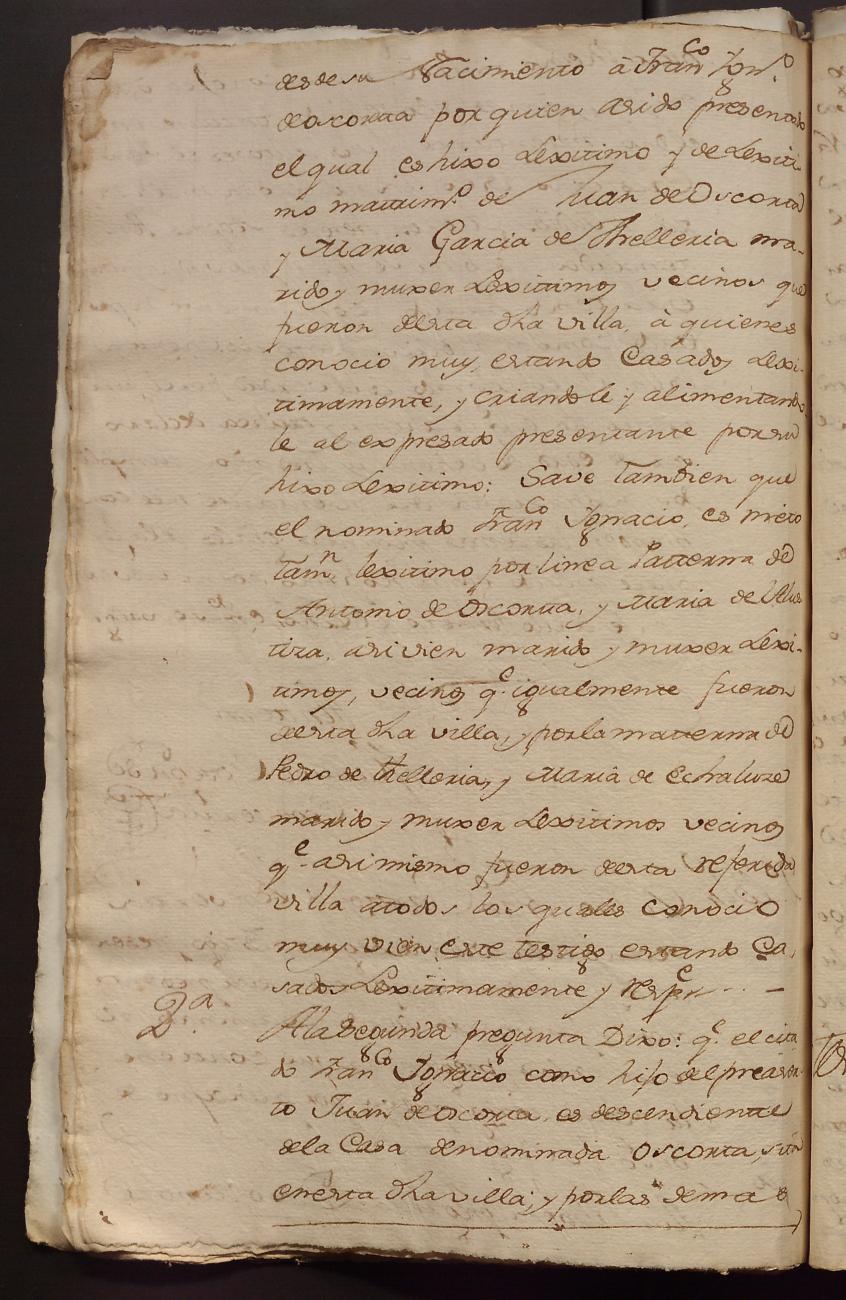 desde su Nacimiento â Fran.co Ygn.o
de oscorta por quien asido presentado
el qual es hixo Lexitimo y de Lexiti-
mo mattrim.o de Juan de Oscorta
y Maria Garcia de Thelleria ma-
rido y muxer Lexitimos vecinos que
fueron desta dha villa, â quienes
conocio muy estando Casados Lexi-
timamente, y criandole y alimentando
le al expresado presentante por su
hixo Lexitimo: Save tambien que
el nominado Fran.co Ygnacio, es nieto
tam.n lexitimo por linea Patterna de
Antonio de Oscorta, y Maria de
tiza, asi vien marido y muxer Lexi-
timos, vecinos q.e igualmente fueron
desta dha villa, y por la matterna de
Pedro de thelleria, y Maria de Echaluze
marido y muxer Lexitimos vecinos
q.e asi mismo fueron desta referida
villa atodos los quales conocio
muy vien este testigo estando Ca-
sados Lexitimamente y resp.e - - -
2.a
Ala Segunda pregunta Dixo: q.e el cita
do Fran.co Ygnacio como hijo del preser
to Juan de Oscorta es descendiente
dela Casa denominada Oscorta, sita
enesta dha villa; y por las demas